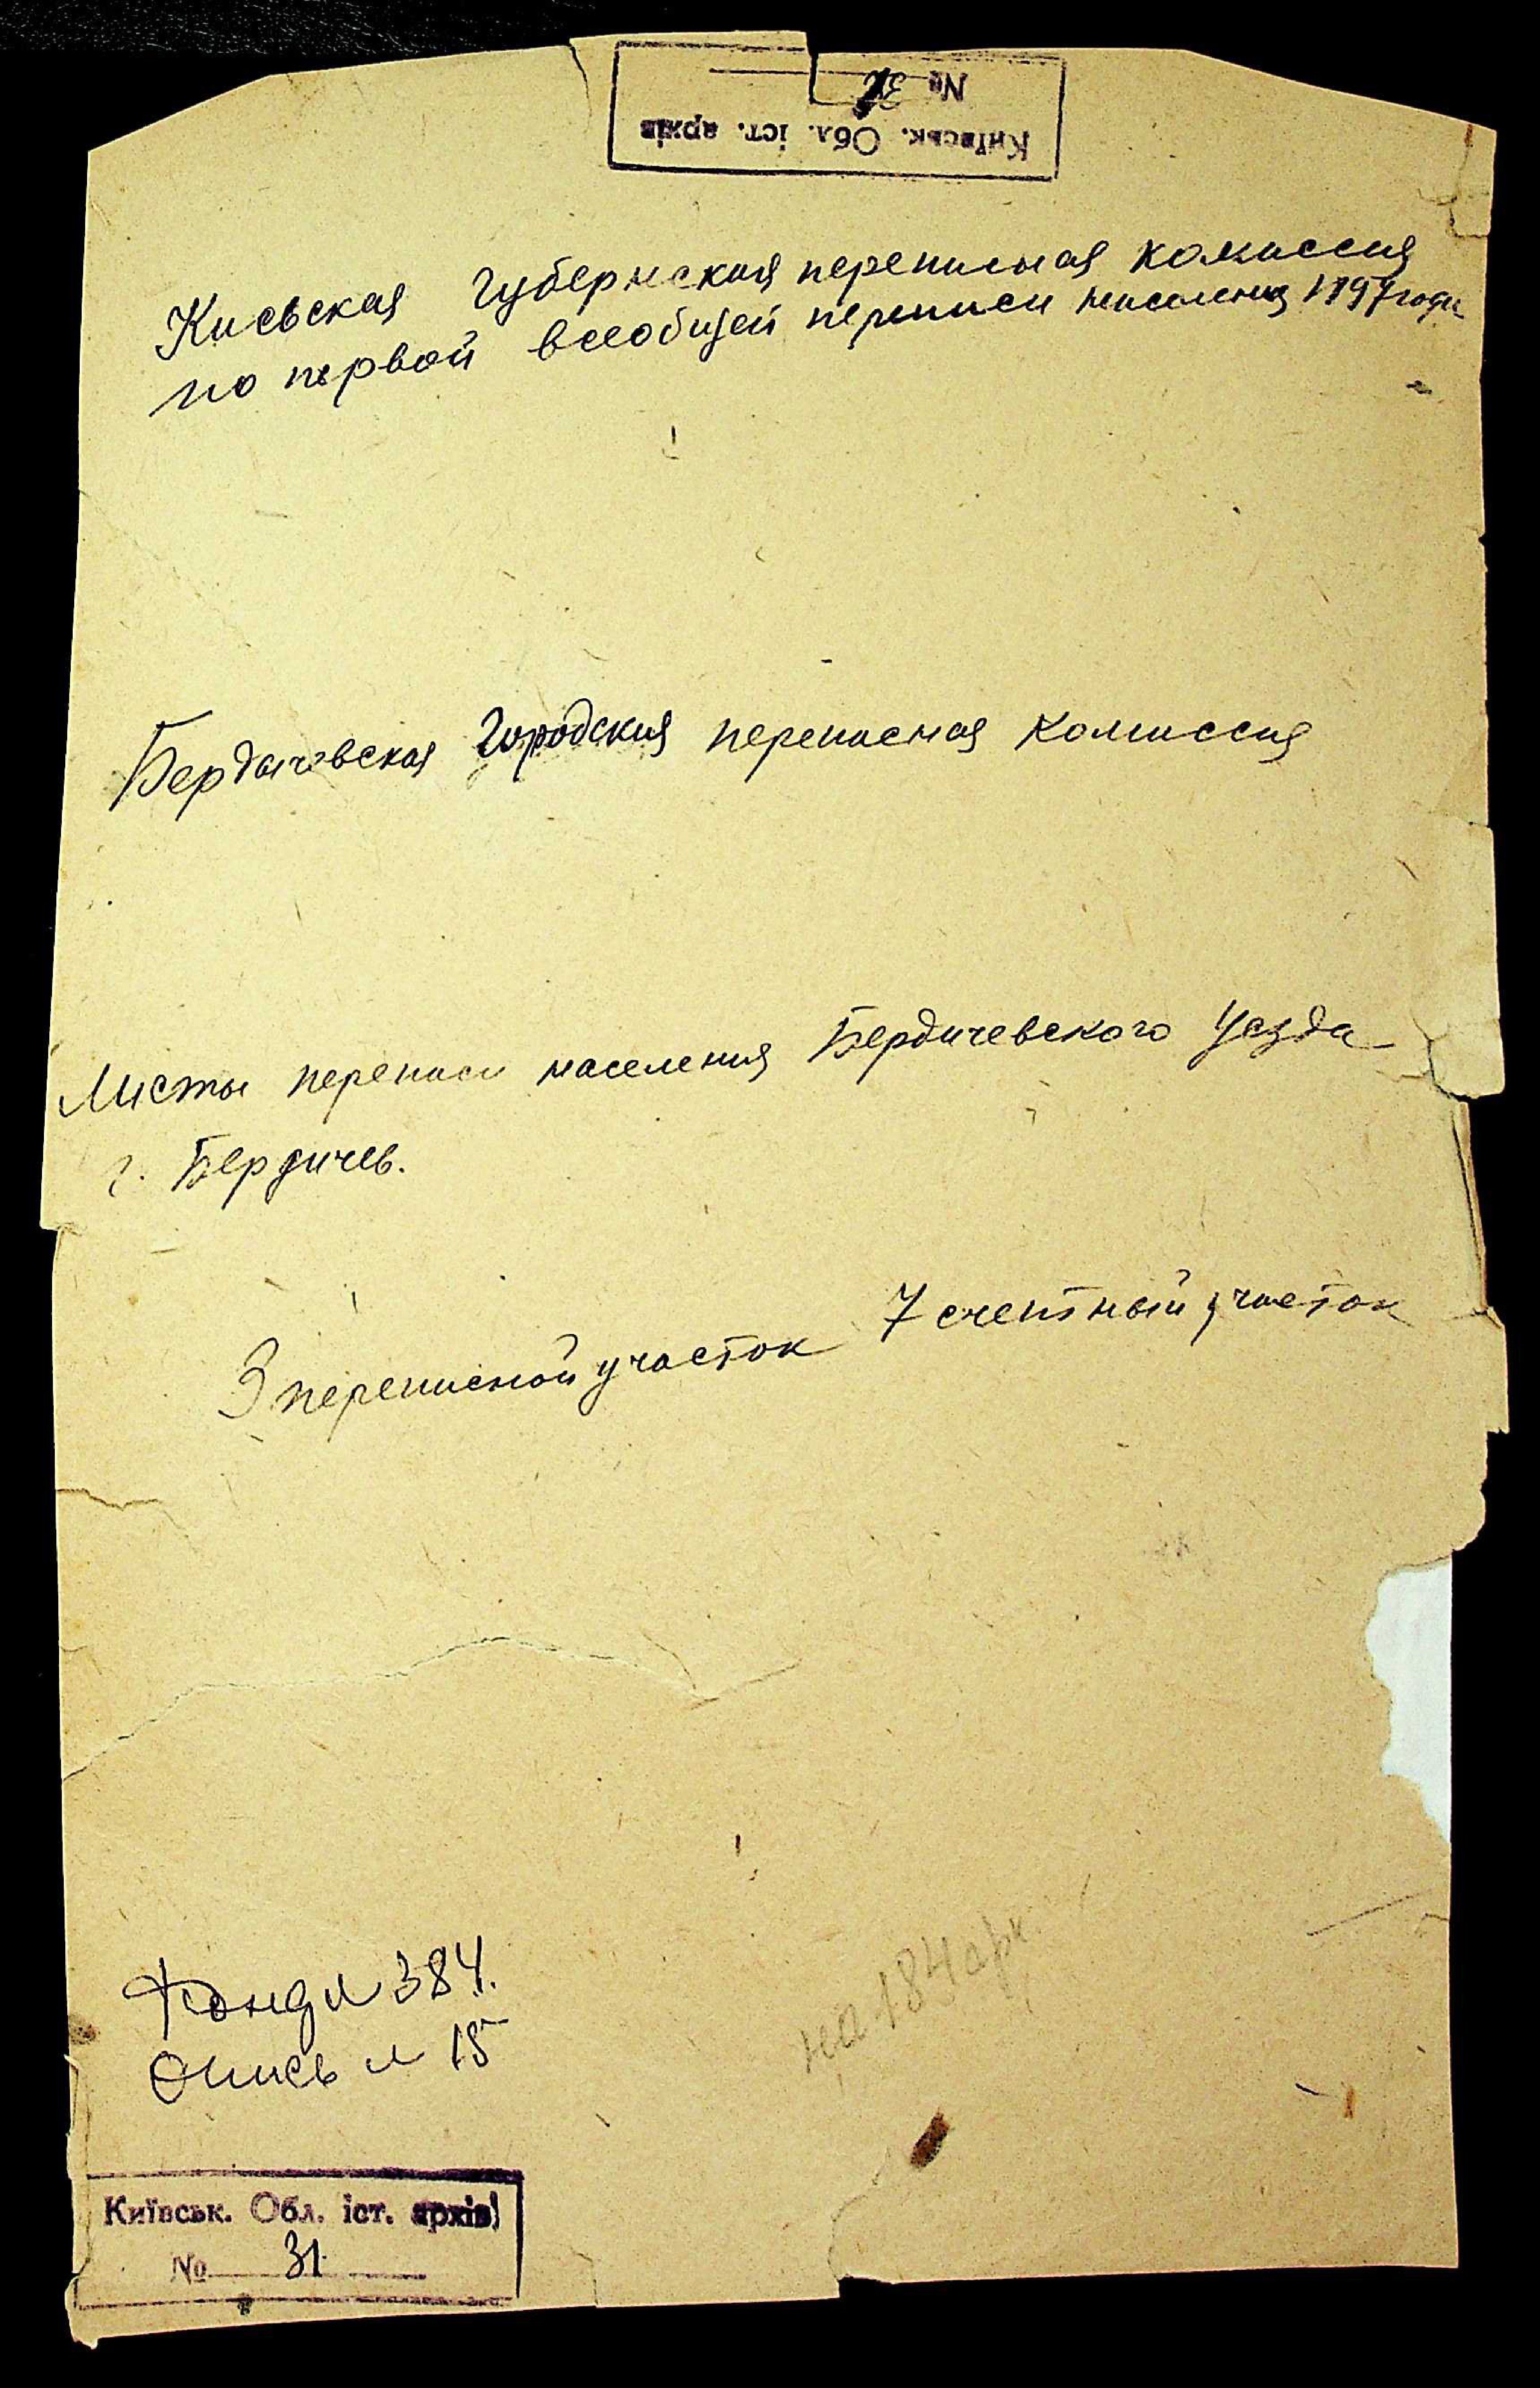 Київськ. Обл. іст. архів
№ 31
Киевская Губернская переписная комиссия
по первой всеобщей переписи населения 1897 года
Бердичевская Городская переписная комиссия
Листы переписи населения Бердичевского Уезда
г. Бердичев.
3 переписной участок 7 счетный участок
Фонд № 384.
Опись № 15
на 184 арк
Київськ. Обл. іст. архів
№ 31